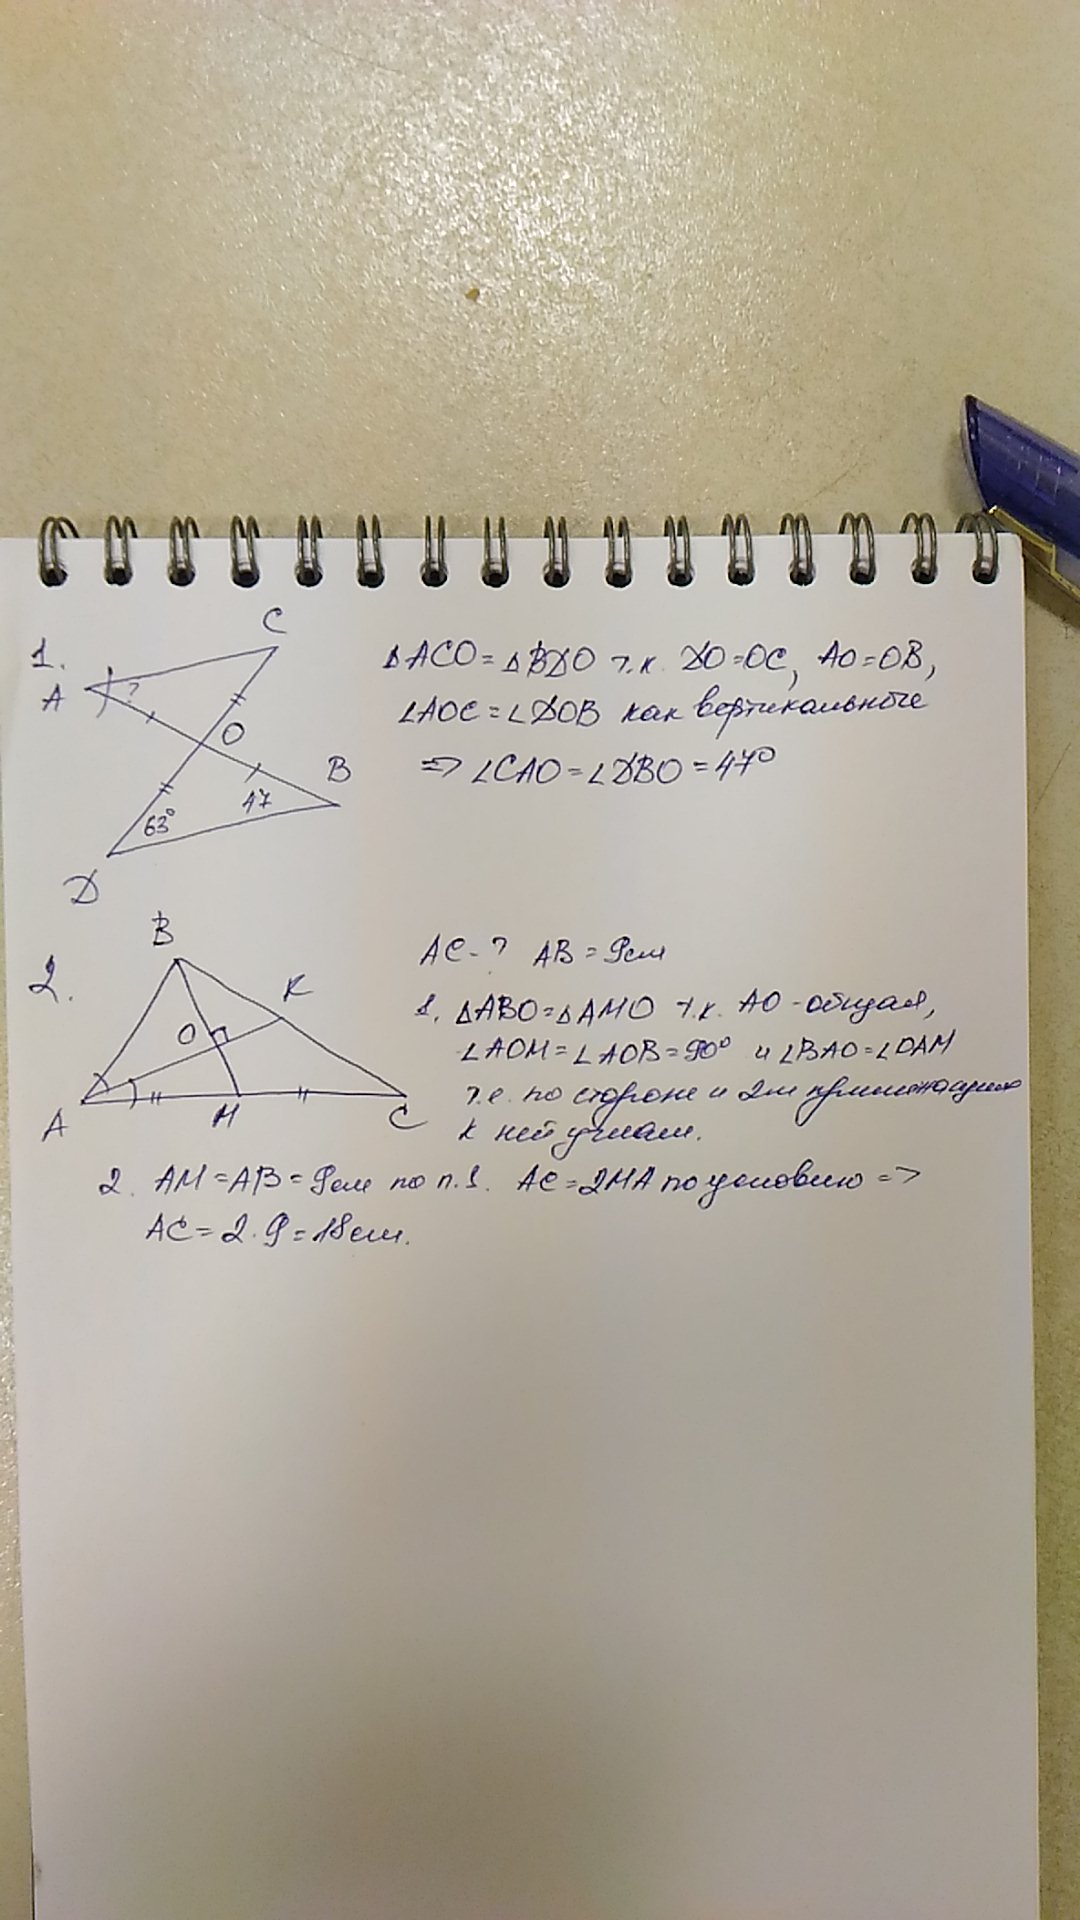 1.
C
A
?
O
B
47
63°
D
ΔACO = ΔBDO т.к. DO=OC, AO=OB,
∠AOC = ∠DOB как вертикальные
=> ∠CAO = ∠DBO = 47°
2.
B
K
O
A
M
C
AC - ? AB = 9см
1. ΔABO = ΔAMO т.к. AO - общая,
∠AOM = ∠AOB = 90° и ∠BAO = ∠OAM
т.е. по стороне и 2м прилежащим
к ней углам.
2. AM = AB = 9см по п.1. AC = 2MA по условию =>
AC = 2·9 = 18см.